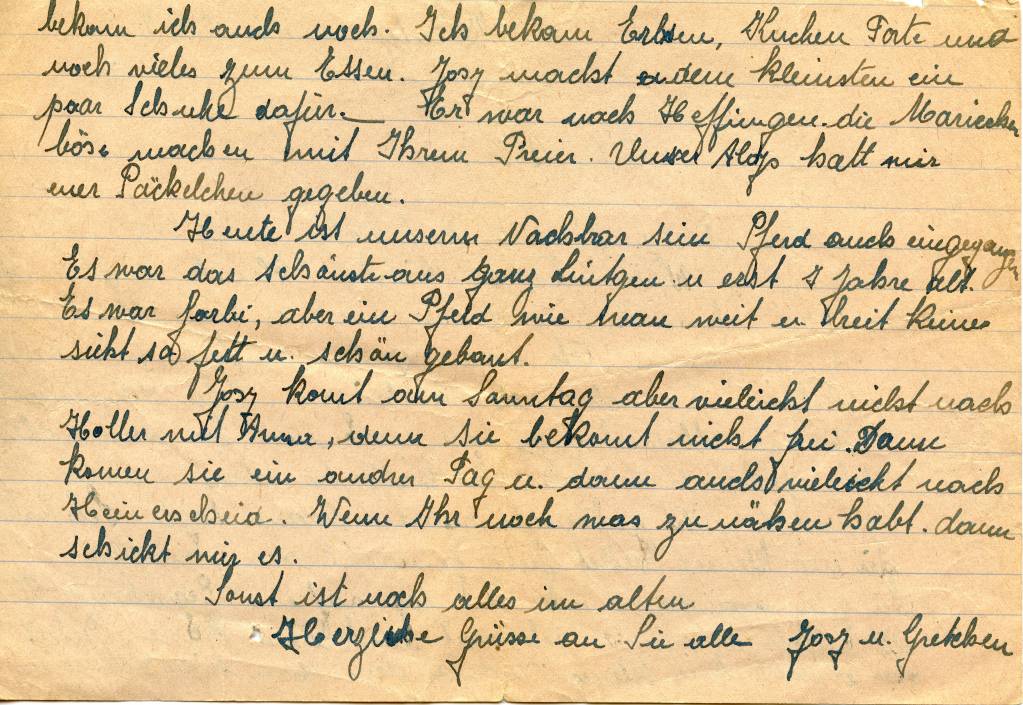 bekam ich auch noch. Ich bekam Erbsen, Kuchen Torte und
noch vieles zum Essen. Josy macht dem kleinsten ein
paar Schuhe dafür. Er war nach Heffingen die Mariechen
böse machen mit Ihrem Freier. Unser Aloys hatt mir
euer Päckelchen gegeben.
Heute ist unserm Nachbar sein Pferd auch eingegangen
Es war das schönste aus ganz Lintgen u erst 7 Jahre alt.
Es war farbi, aber ein Pferd wie man weit u. breit keines
sieht so fett u. schön gebaut.
Josy komt am Sonntag aber vieleicht nicht nach
Holler mit Anna, denn sie bekomt nicht frei. Dann
komen sie ein andrer Tag u. dann auch vieleicht nach
Heinerscheid. Wenn Ihr noch was zu nähen habt. dann
schickt mir es.
Sonst ist noch alles im alten
Herzliche Grüsse an Sie alle Josy u. Gretchen